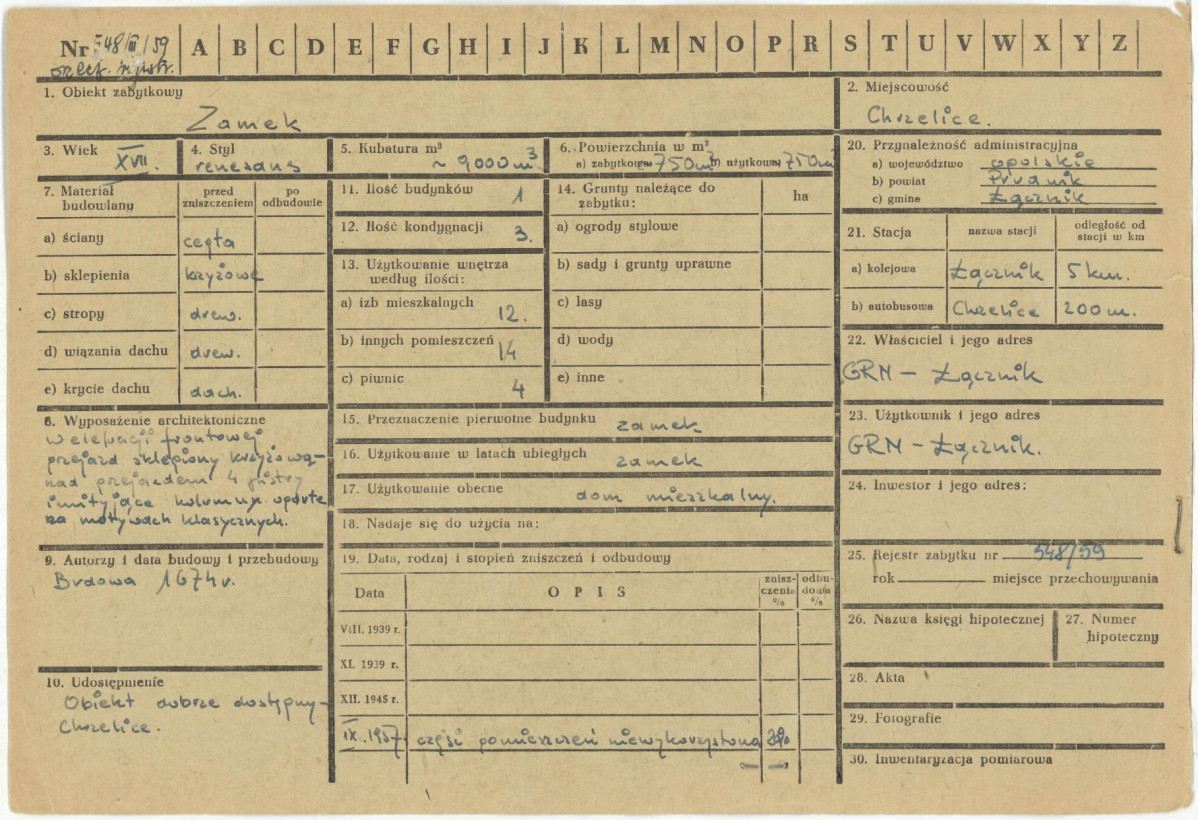 Nr 548/III/59 A B C D E F G H I J K L M N O P R S T U V W X Y Z
orzecz. rejestr.
1. Obiekt zabytkowy
Zamek
2. Miejscowość
Chrzelice.
3. Wiek
XVII.
4. Styl
renesans
5. Kubatura m³
~ 9000 m³
6. Powierzchnia w m²
a) zabytkowa 750 m² b) użytkowa 750 m²
20. Przynależność administracyjna
a) województwo opolskie
b) powiat Prudnik
c) gmine Łącznik
7. Materiał budowlany
przed zniszczeniem
po odbudowie
a) ściany cegła
b) sklepienia krzyżowe
c) stropy drew.
d) wiązania dachu drew.
e) krycie dachu dach.
8. Wyposażenie architektoniczne
W elewacji frontowej
przejazd sklepiony krzyżową-
nad przejazdem 4
imitujące kolumny. oparte
na motywach klasycznych.
9. Autorzy i data budowy i przebudowy
Budowa 1674 r.
10. Udostępnienie
Obiekt dobrze dostępny-
Chrzelice.
11. Ilość budynków 1
12. Ilość kondygnacji 3.
13. Użytkowanie wnętrza
według ilości:
a) izb mieszkalnych 12.
b) innych pomieszczeń 14
c) piwnic 4
14. Grunty należące do
zabytku:
ha
a) ogrody stylowe
b) sady i grunty uprawne
c) lasy
d) wody
e) inne
15. Przeznaczenie pierwotne budynku zamek
16. Użytkowanie w latach ubiegłych zamek
17. Użytkowanie obecne dom mieszkalny.
18. Nadaje się do użycia na:
19. Data, rodzaj i stopień zniszczeń i odbudowy
Data
OPIS
znisz-
czenia
%
odbu-
dowa
%
VIII. 1939 r.
XI. 1939 r.
XII. 1945 r.
IX. 1957 część pomieszczeń niewykorzystana 20%
21. Stacja
nazwa stacji
odległość od
stacji w km
a) kolejowa Łącznik 5 km.
b) autobusowa Chrzelice 200 m.
22. Właściciel i jego adres
GRN – Łącznik
23. Użytkownik i jego adres
GRN – Łącznik.
24. Inwestor i jego adres:
25. Rejestr zabytku nr 548/59
rok miejsce przechowywania
26. Nazwa księgi hipotecznej
27. Numer
hipoteczny
28. Akta
29. Fotografie
30. Inwentaryzacja pomiarowa